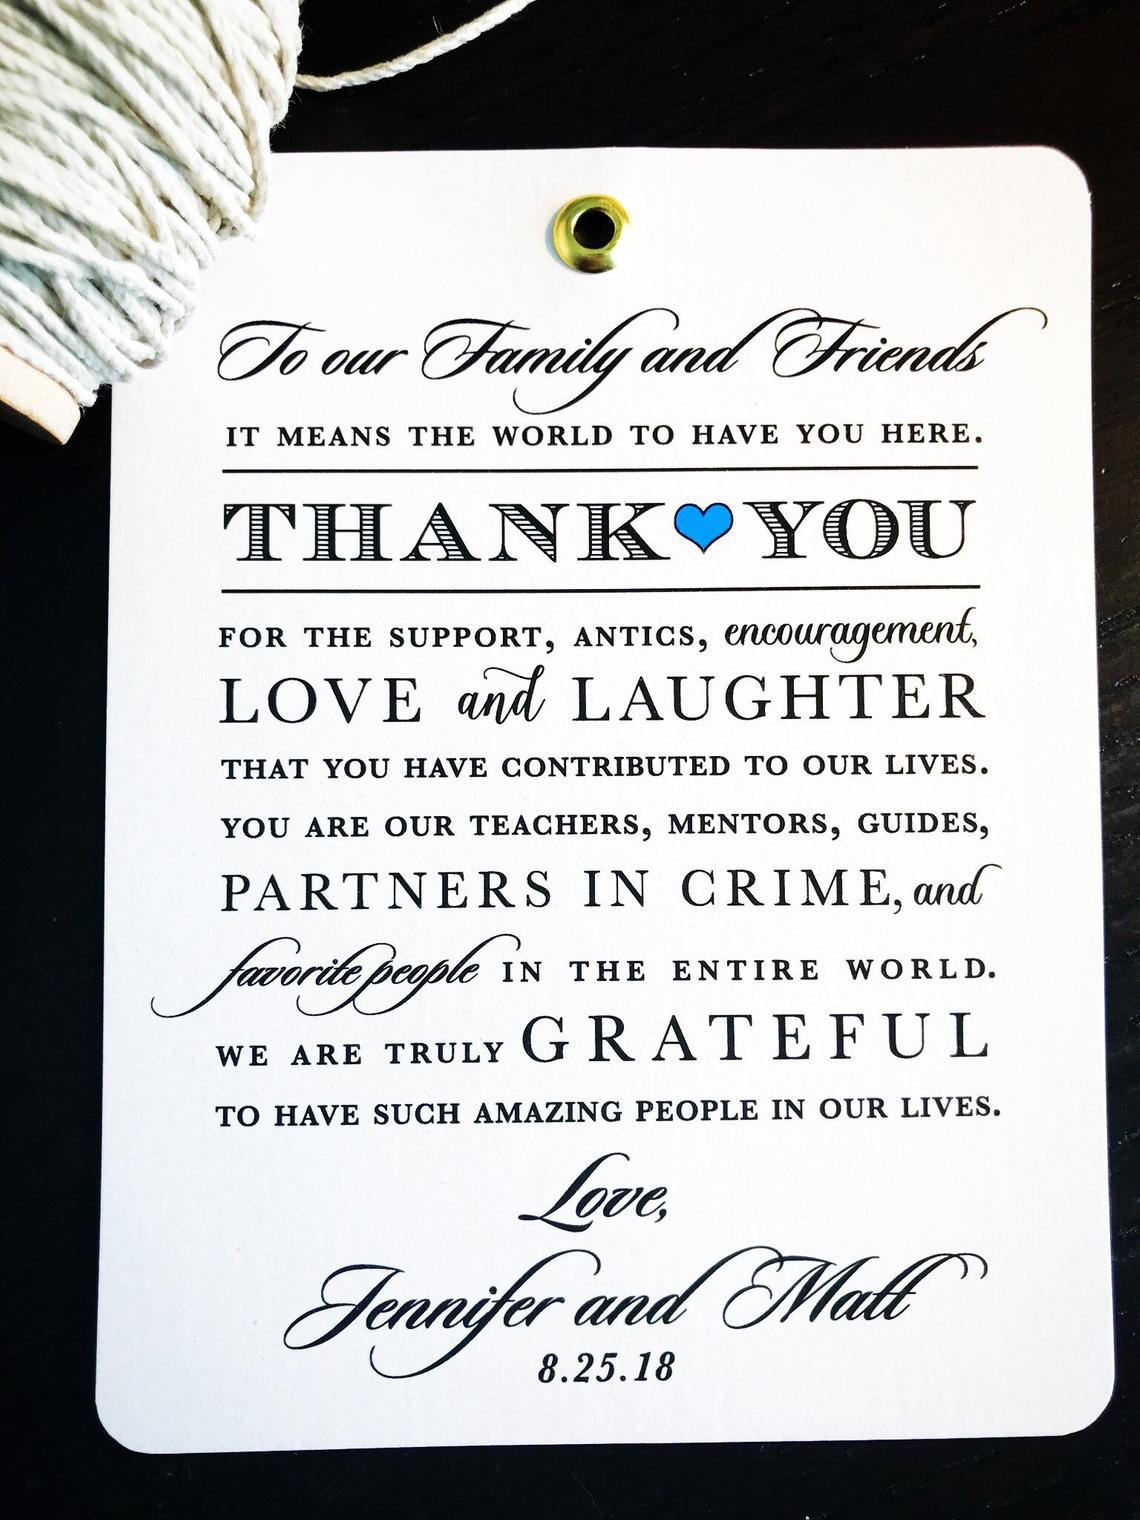 To our Family and Friends
IT MEANS THE WORLD TO HAVE YOU HERE.
THANK YOU
FOR THE SUPPORT, ANTICS, encouragement,
LOVE and LAUGHTER
THAT YOU HAVE CONTRIBUTED TO OUR LIVES.
YOU ARE OUR TEACHERS, MENTORS, GUIDES,
PARTNERS IN CRIME, and
favorite people IN THE ENTIRE WORLD.
WE ARE TRULY GRATEFUL
TO HAVE SUCH AMAZING PEOPLE IN OUR LIVES.
Love,
Jennifer and Matt
8.25.18